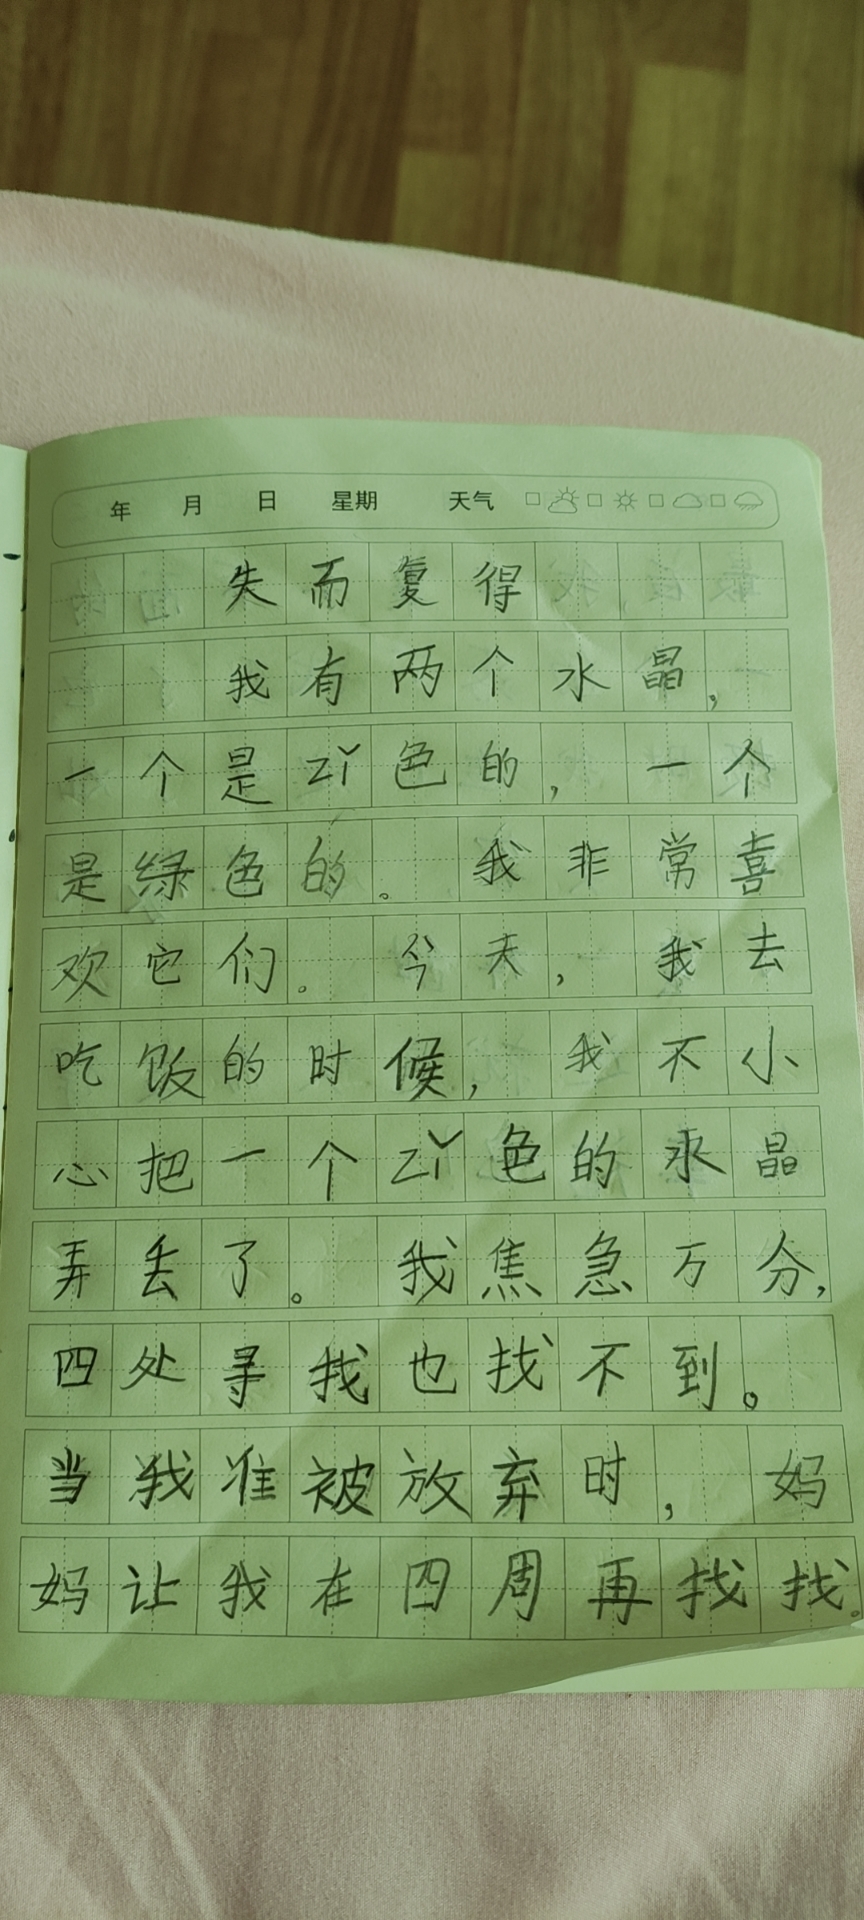 年 月 日 星期 天气
失而复得
我有两个水晶，
一个是zǐ色的，一个
是绿色的。我非常喜
欢它们。今天，我去
吃饭的时候，我不小
心把一个zǐ色的水晶
弄丢了。我焦急万分，
四处寻找也找不到。
当我准被放弃时，妈
妈让我在四周再找找。